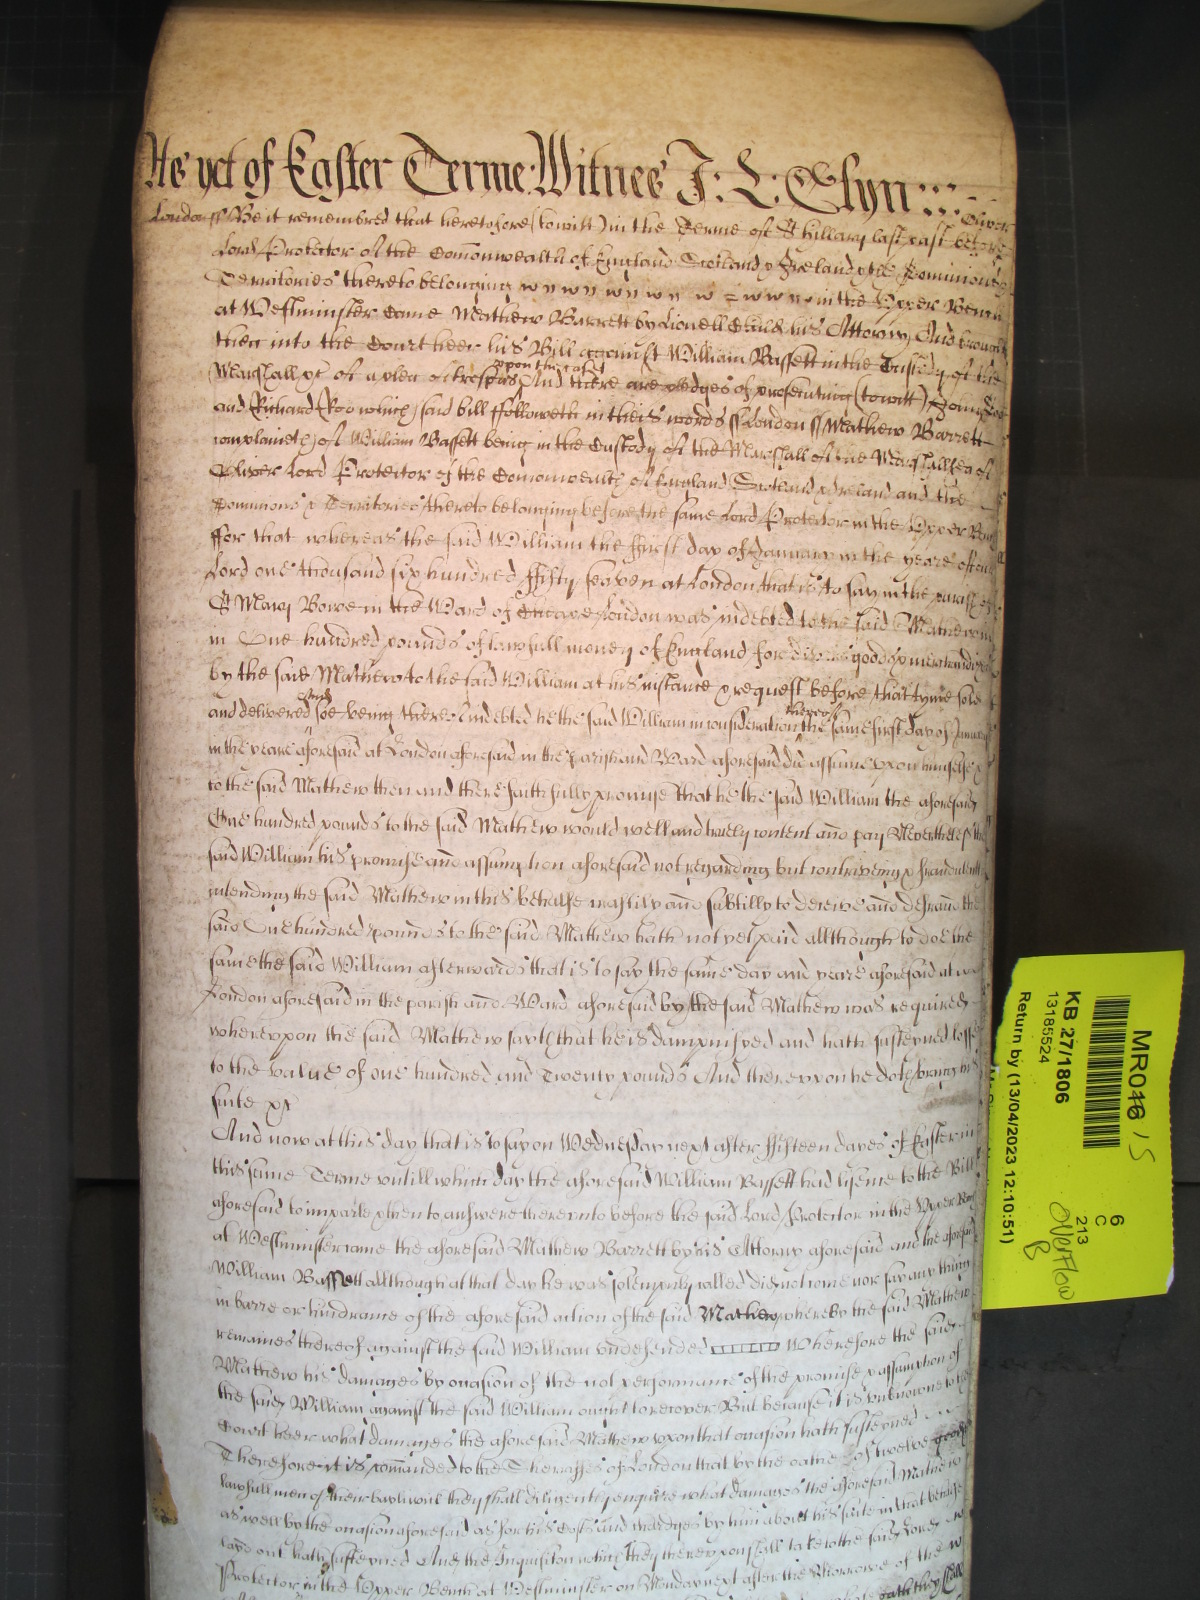 As yet of Easter Terme Witnes J: L: Glyn :::
London ss Be it remembred that heretofore (towitt) in the Terme of St hillary last past before Oliver
Lord Protector of the Comonwealth of England Scotland & Ireland & the Dominions &
Territories thereto belonging in the Upper Bench
at Westminster Came Mathew Barrett by Lionell Child his Attorny And brought
then into the Court heer his Bill against William Bassett in the Custody of the
Marshall &c of a plea of trespas upon the case And there are pledges of prosecuting (towitt) John Doe
and Richard Roo which said bill ffolloweth in theis words ss London ss Mathew Barrett
complaineth of William Bassett being in the Custody of the Marshall of the Marshallsea of
Oliver Lord Protector of the Comonwealth of England Scotland & Ireland and the
Dominions & Territories thereto belonging before the same Lord Protector in the Upper Bench
ffor that whereas the said William the ffirst day of January in the yeare of our
Lord one thousand six hundred ffifty seaven at London that is to say in the parish of
St Mary Bowe in the Ward of London was indebted to the said Mathew in
in One hundred pounds of lawfull money of England for divers goods & merchandizes
by the said Mathew to the said William at his instance & request before that tyme sold
and delivered And soe being thereof indebted he the said William in consideration thereof the same first day of January
in the yeare aforesaid at London aforesaid in the parish and Ward aforesaid did assume upon himselfe &
to the said Mathew then and there faithfully promise that he the said William the aforesaid
One hundred pounds to the said Mathew would well and truely content and pay Neverthelesse the
said William his promise and assumption aforesaid not regarding but contriveing & fraudulently
intending the said Mathew in this behalfe craftily and subtilly to deceive and defraud the
said One hundred pounds to the said Mathew hath not yet paid allthough to doe the
same the said William afterwards that is to say the same day and yeare aforesaid at
London aforesaid in the parish and Ward aforesaid by the said Mathew was required
whereupon the said Mathew sayth that he is dampnifyed and hath susteyned losse
to the value of one hundred and Twenty pounds And thereupon he doth bring his
suite &c
And now at this day that is to say on Wednesday next after ffifteen dayes of Easter in
this same Terme untill which day the aforesaid William Bassett had lycence to the Bill
aforesaid to imparle & then to answere thereunto before the said Lord Protector in the Upper Bench
at Westminster came the aforesaid Mathew Barrett by his Attorny aforesaid and the aforesaid
William Bassett allthough at that day he was solempnly called did not come nor say any thing
in barre or hindrance of the aforesaid action of the said Mathew whereby the said Mathew
remaines thereof against the said William undefended Wherefore the said
Matthew his damages by occasion of the not performance of the promise & assumption of
the said William against the said William ought to recover But because it is unknowne to the
Court heer what damages the aforesaid Mathew upon that occasion hath susteyned
Therefore it is comanded to the Sherriffes of London that by the oathe of twelve good
lawfull men of their baylwick they shall diligently enquire what damages the aforesaid Mathew
as well by the occasion aforesaid as for his Costs and chardges by him about his suite in that behalfe
layd out hath susteyned And the Inquisicon which they thereupon shall take to the said Lord
Protector in the Upper Bench at Westminster on Monday next after the Morrowe of the
MR016 / S
KB 27/1806
13185524
Return by (13/04/2023 12:10:51)
6
C
213
OVERFLOW
B